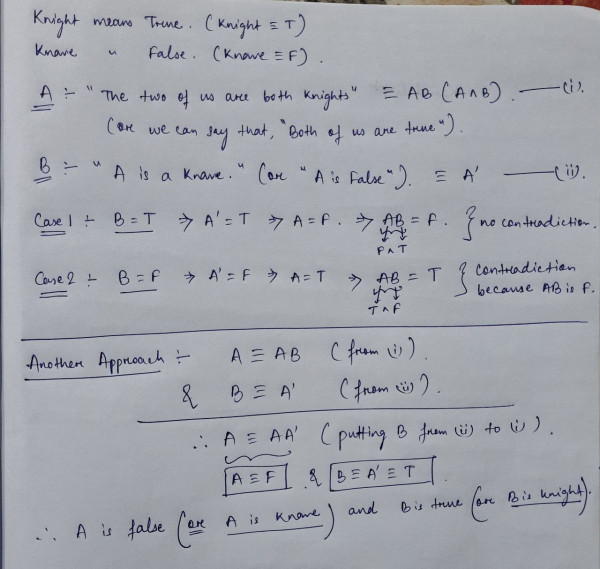 Knight means True. (Knight ≡ T)
Knave " False. (Knave ≡ F).
A :- "The two of us are both Knights" ≡ AB (A∧B). —(i).
(or we can say that, "Both of us are true").
B :- "A is a Knave." (or "A is False"). ≡ A' —(ii).
Case 1 :- B = T ⇒ A' = T ⇒ A = F. ⇒ AB = F. } no contradiction.
F ∧ T
Case 2 :- B = F ⇒ A' = F ⇒ A = T ⇒ AB = T } contradiction
T ∧ F because AB is F.
Another Approach :- A ≡ AB (from (i)).
& B ≡ A' (from (ii)).
∴ A ≡ AA' (putting B from (ii) to (i)).
A ≡ F & B ≡ A' ≡ T.
∴ A is false (or A is Knave) and B is true (or B is Knight).